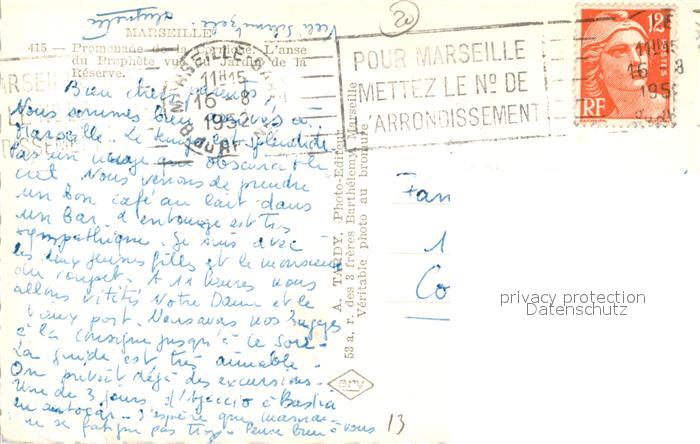 MARSEILLE
415 — Promenade de la Corniche. L'anse
du Prophète vue du Jardin de la
Réserve.
MARSEILLE GARE
11H15
16-8
1952
B. du R.
POUR MARSEILLE
METTEZ LE Nº DE
L'ARRONDISSEMENT
12F
POSTES
RF
20
Bien chers
Nous sommes bien arrivés à
Marseille. Le temps est splendide
Pas un nuage qui obscurcit le
ciel. Nous venons de prendre
un bon café au lait dans
un bar d'entourage est très
sympathique. Je suis avec
les deux jeunes filles et le monsieur
du . A 11 heures nous
allons visiter Notre Dame et le
vieux port. Nous avons nos bagages
à la consigne jusqu'à ce soir.
La guide est très aimable.
On prévoit déjà des excursions.
Une de 3 jours d'Ajaccio à Bastia
en autocar. J'espère que maman
ne se fatigue pas trop. bien à vous
A. TARDY, Photo-Editeur
53 a, r. des 3 frères Barthélemy, Marseille
Véritable photo au bromure
Fan
1
Co
13
privacy protection
Datenschutz